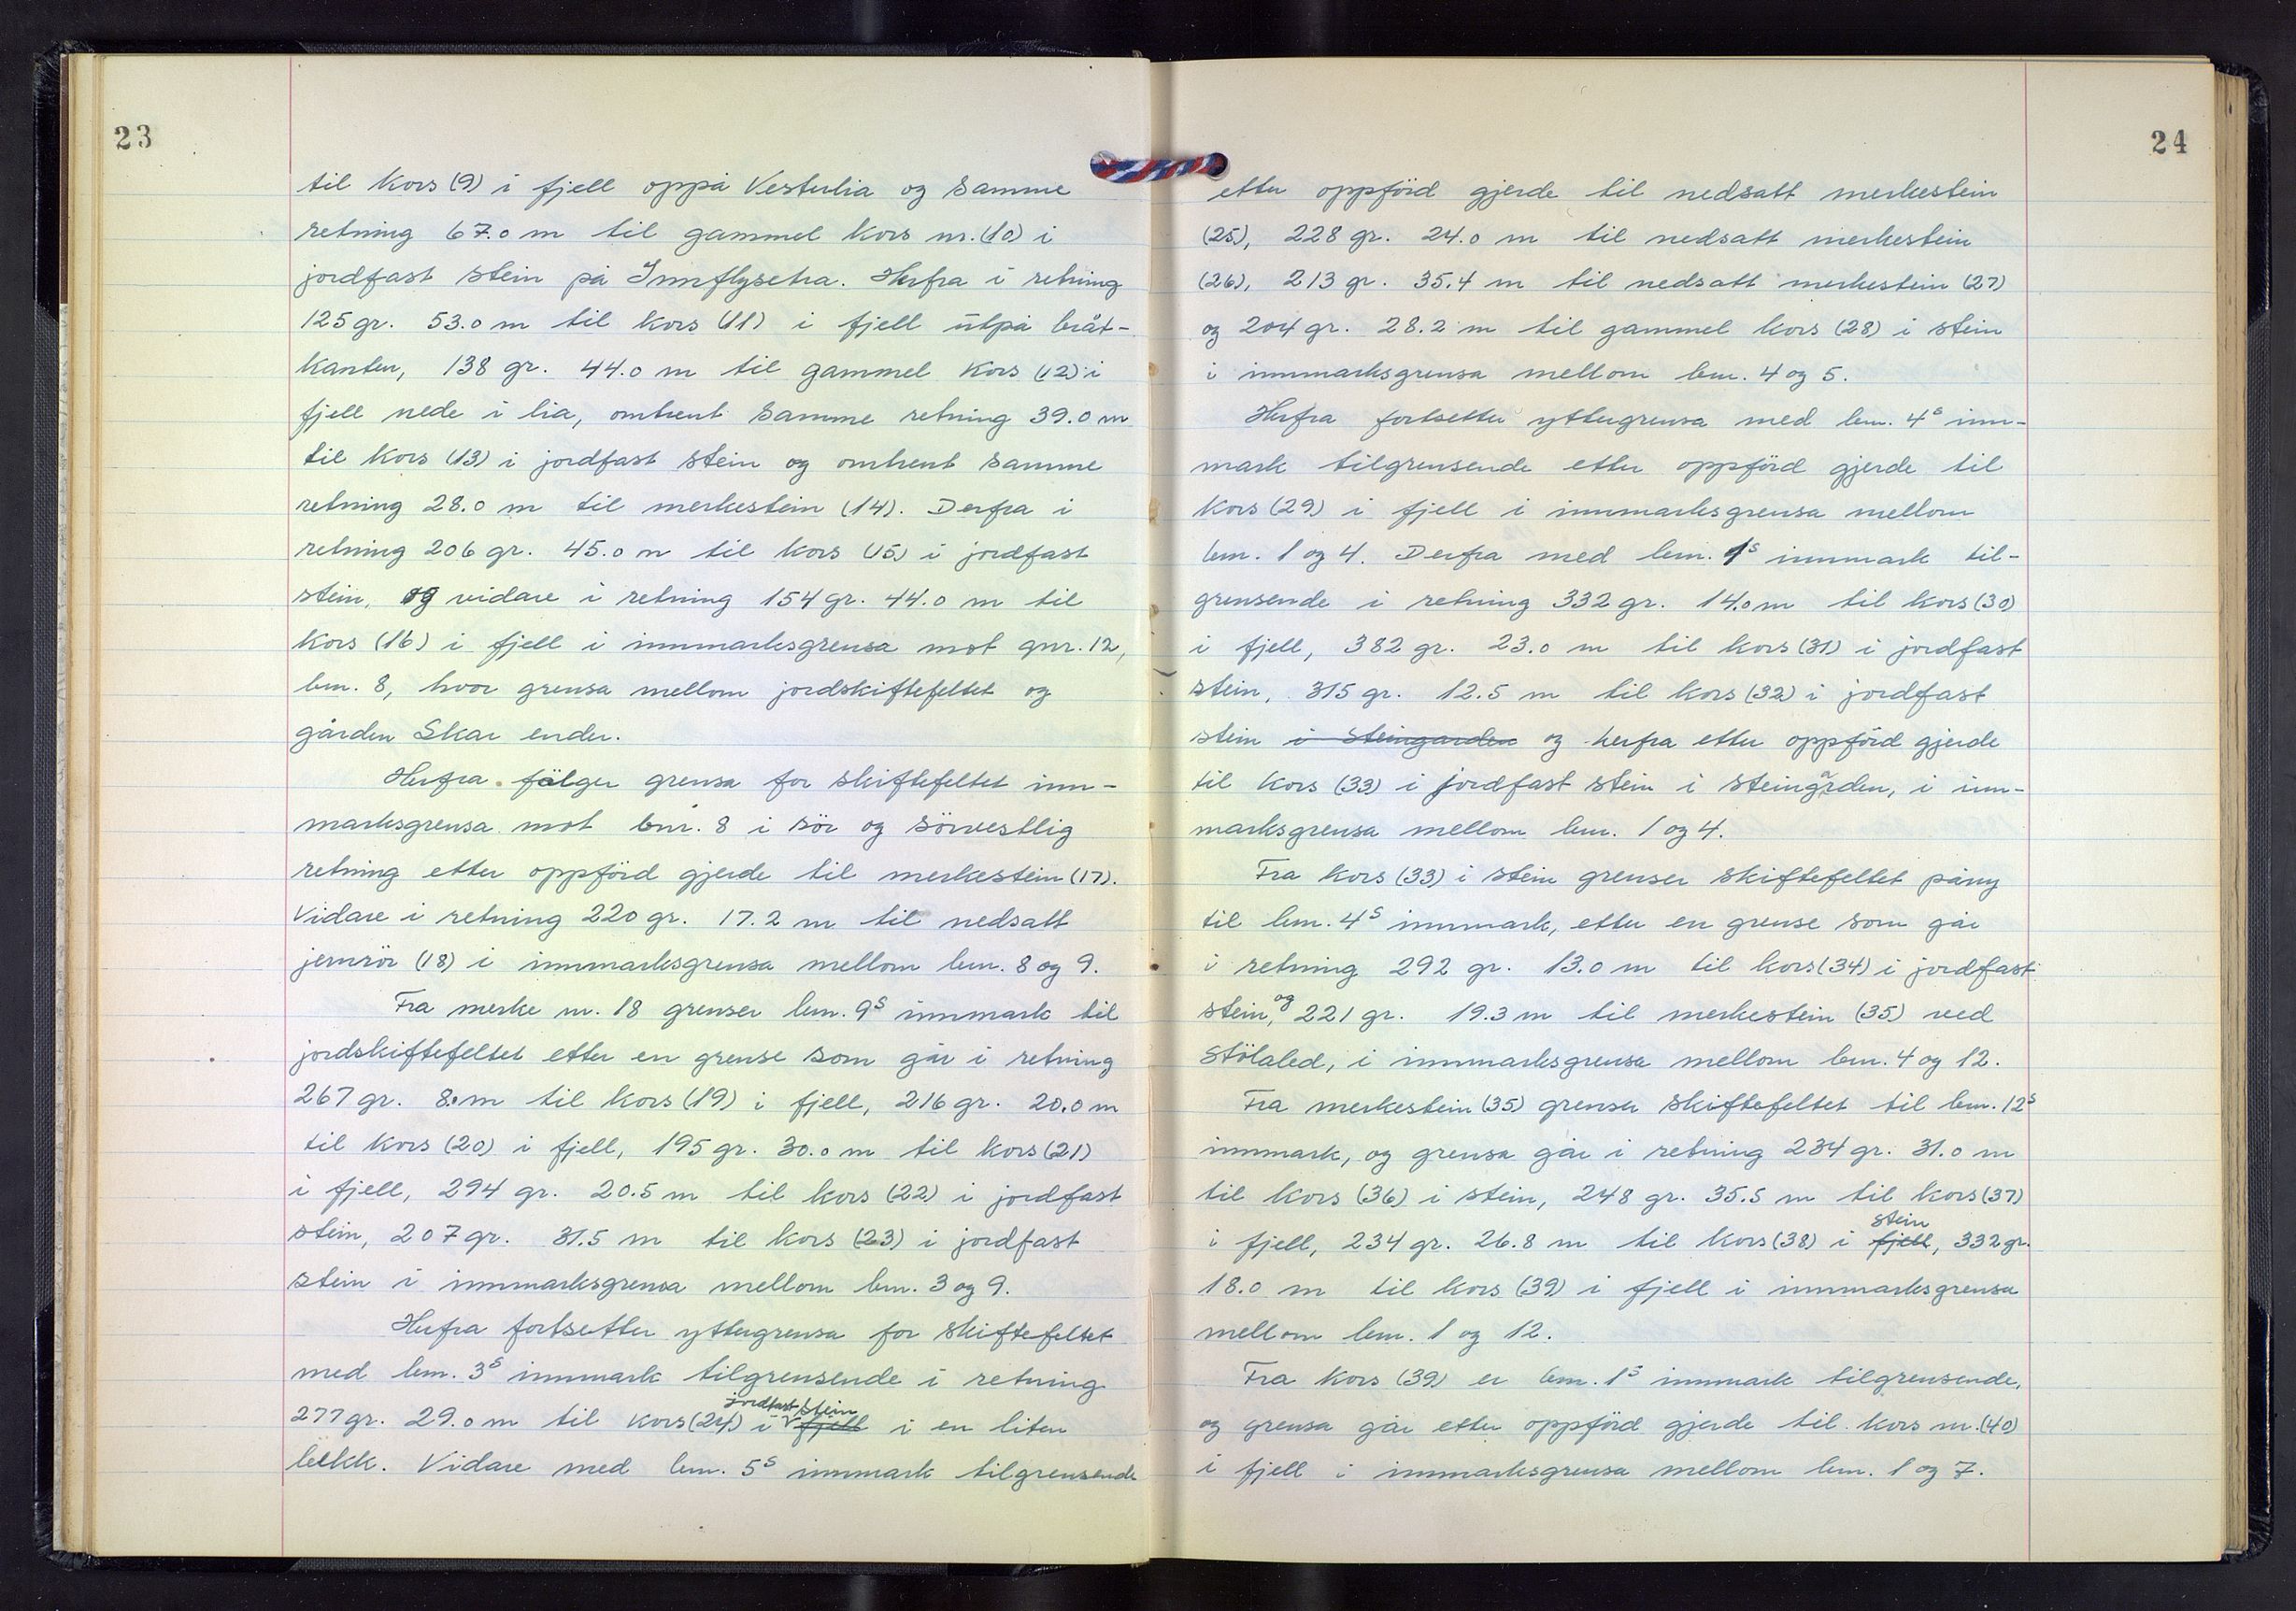 23
til kors (9) i fjell oppå Vesterlia og samme
retning 67.0 m til gammel kors nr. (10) i
jordfast stein på Innflysetra. Herfra i retning
125 gr. 53.0 m til kors (11) i fjell utpå bråt-
kanten, 138 gr. 44.0 m til gammel kors (12) i
fjell nede i lia, omtrent samme retning 39.0 m
til kors (13) i jordfast stein og omtrent samme
retning 28.0 m til merkestein (14). Derfra i
retning 206 gr. 45.0 m til kors (15) i jordfast
stein, og vidare i retning 154 gr. 44.0 m til
kors (16) i fjell i innmarksgrensa mot gnr. 12,
bnr. 8, hvor grensa mellom jordskiftefeltet og
gården Skar ender.
Herfra fölger grensa for skiftefeltet inn-
marksgrensa mot bnr. 8 i sör og sörvestlig
retning etter oppförd gjerde til merkestein (17).
Vidare i retning 220 gr. 17.2 m til nedsatt
jernrör (18) i innmarksgrensa mellom bnr. 8 og 9.
Fra merke nr. 18 grenser bnr. 9s innmark til
jordskiftefeltet etter en grense som går i retning
267 gr. 8.0 m til kors (19) i fjell, 216 gr. 20.0 m
til kors (20) i fjell, 195 gr. 30.0 m til kors (21)
i fjell, 294 gr. 20.5 m til kors (22) i jordfast
stein, 207 gr. 31.5 m til kors (23) i jordfast
stein i innmarksgrensa mellom bnr. 3 og 9.
Herfra fortsetter yttergrensa for skiftefeltet
med bnr. 3s innmark tilgrensende i retning
jordfast stein
277 gr. 29.0 m til kors (24) i fjell i en liten
bekk. Vidare med bnr. 5s innmark tilgrensende
24
etter oppförd gjerde til nedsatt merkestein
(25), 228 gr. 24.0 m til nedsatt merkestein
(26), 213 gr. 35.4 m til nedsatt merkestein (27)
og 204 gr. 28.2 m til gammel kors (28) i stein
i innmarksgrensa mellom bnr. 4 og 5.
Herfra fortsetter yttergrensa med bnr. 4s inn-
mark tilgrensende etter oppförd gjerde til
kors (29) i fjell i innmarksgrensa mellom
bnr. 1 og 4. Derfra med bnr. 1s innmark til-
grensende i retning 332 gr. 14.0 m til kors (30)
i fjell, 382 gr. 23.0 m til kors (31) i jordfast
stein, 315 gr. 12.5 m til kors (32) i jordfast
stein i steingarden og herfra etter oppförd gjerde
til kors (33) i jordfast stein i steingården, i inn-
marksgrensa mellom bnr. 1 og 4.
Fra kors (33) i stein grenser skiftefeltet påny
til bnr. 4s innmark, etter en grense som går
i retning 292 gr. 13.0 m til kors (34) i jordfast
stein, og 221 gr. 19.3 m til merkestein (35) ved
Stölaled, i innmarksgrensa mellom bnr. 4 og 12.
Fra merkestein (35) grenser skiftefeltet til bnr. 12s
innmark, og grensa går i retning 234 gr. 31.0 m
til kors (36) i stein, 248 gr. 35.5 m til kors (37)
stein
i fjell, 234 gr. 26.8 m til kors (38) i fjell, 332 gr.
18.0 m til kors (39) i fjell i innmarksgrensa
mellom bnr. 1 og 12.
Fra kors (39) er bnr. 1s innmark tilgrensende,
og grensa går etter oppförd gjerde til kors nr. (40)
i fjell i innmarksgrensa mellom bnr. 1 og 7.